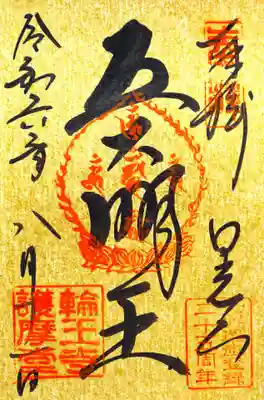 奉拝
日光山
五大明王
令和六年
八月十一日
輪王寺
護摩堂
二十周年